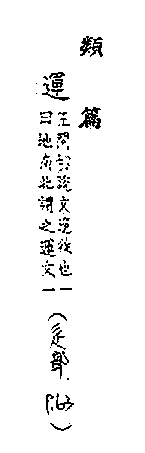 類篇
運
王問切說文迻徙也一
曰地南北謂之運文一
(辵部、P.63)